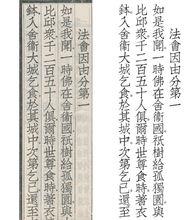 法會因由分第一
如是我聞一時佛在舍衛國祇樹給孤獨園與
比丘衆千二百五十人俱爾時世尊食時著衣
鉢入舍衛大城乞食於其城中次第乞已還至
法會因由分第一
如是我聞一時佛在舍衛國祇樹給孤獨園與
比丘衆千二百五十人俱爾時世尊食時著衣
鉢入舍衛大城乞食於其城中次第乞已還至